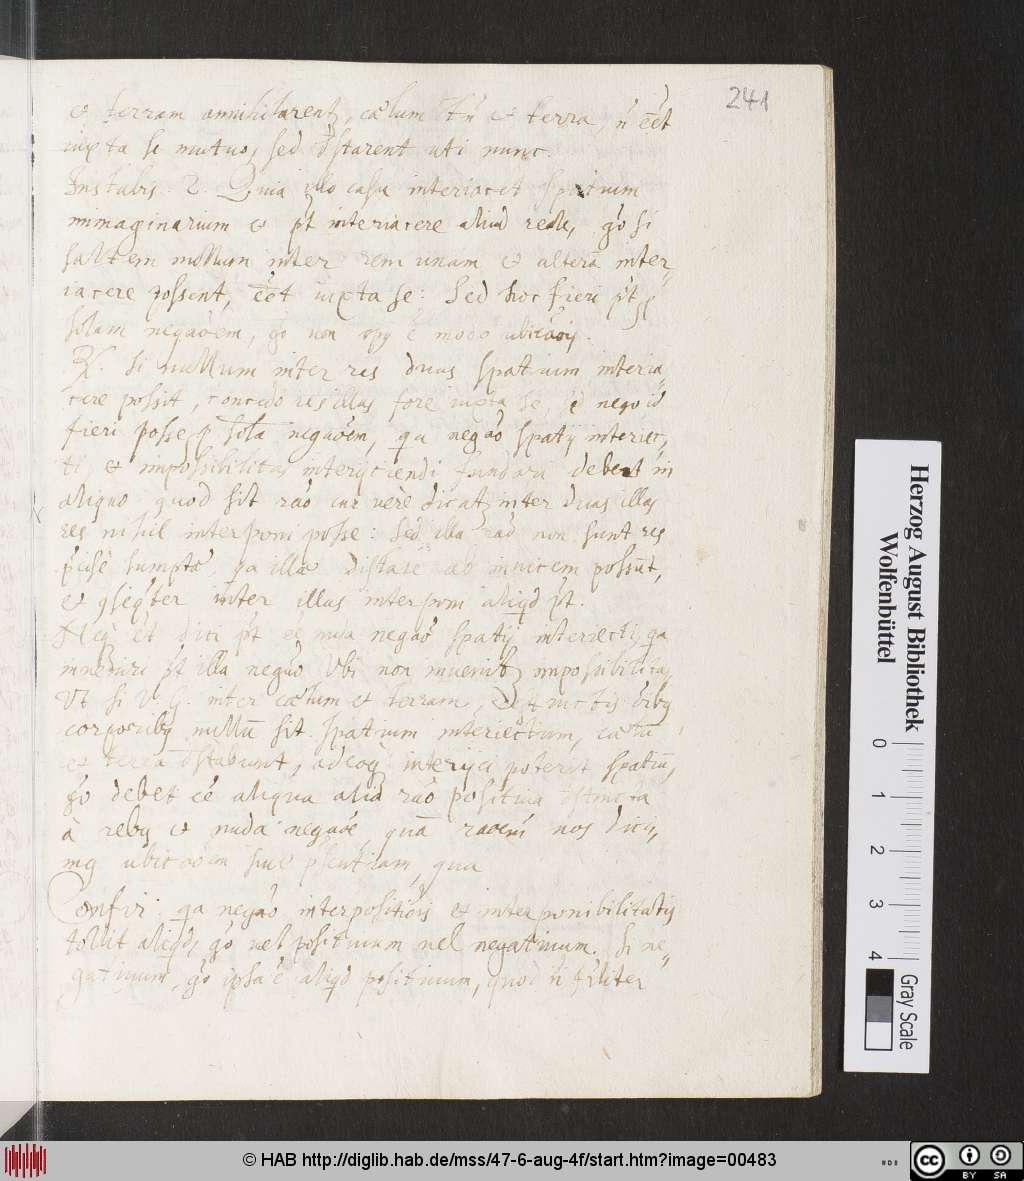 241
et terram annihilarentur, cælum tn̄ et terra, n̄ eēt
iuxta se mutuo, sed distarent uti nunc.
Instabis. 2. Quia illo casu interiacet spatium
immaginarium et pt̄ interiacere aliud reale, go si
saltem nullum inter rem unam et alterā inter
iacere possent, eēt iuxta se: Sed hoc fieri pt̄ p
solam negaōem, go non opus ē modo ubicaōis.
R. si nullum inter res duas spatium interia
cere possit, concedo res illas fore iuxta se, sed nego id
fieri posse p solā negaōem, qa negaō spatij interiec,
ti, et impossibilitas interijciendi fundari debent in
aliquo quod sit raō cur vere dicatur inter duas illas
res nihil interponi posse: Sed illa raō non sunt res
p̄cisè sumptæ, qa illæ distare ab invicem possūt,
et gseqter inter illas interponi aliqd pt.
Neq et dici pt eē mera negaō spatij interiecti, qa
inveniri pt illa negaō ubi non invenitur impossibilitas
Vt si V.G. inter cælum et terram, destructis oībq
corporibq nullū sit spatium interiectum, cælū
et terra distabunt, adeoq interijci poterit spatiū,
go debet eē aliqua alia raō positiva distincta
à rebq et nuda negaōe, quā raōem nos dici,
mq ubicaōem sive p̄sentiam, qua
Confir. qa negaō interpositiōis et interponibilitatis
tollit aliqd, go vel positivum vel negativum. Si ne,
gativum, go ipsa ē aliqd positivum, quod n̄ trliter
Herzog August Bibliothek
Wolfenbüttel
0 1 2 3 4
Gray Scale
© HAB http://diglib.hab.de/mss/47-6-aug-4f/start.htm?image=00483
cc BY SA